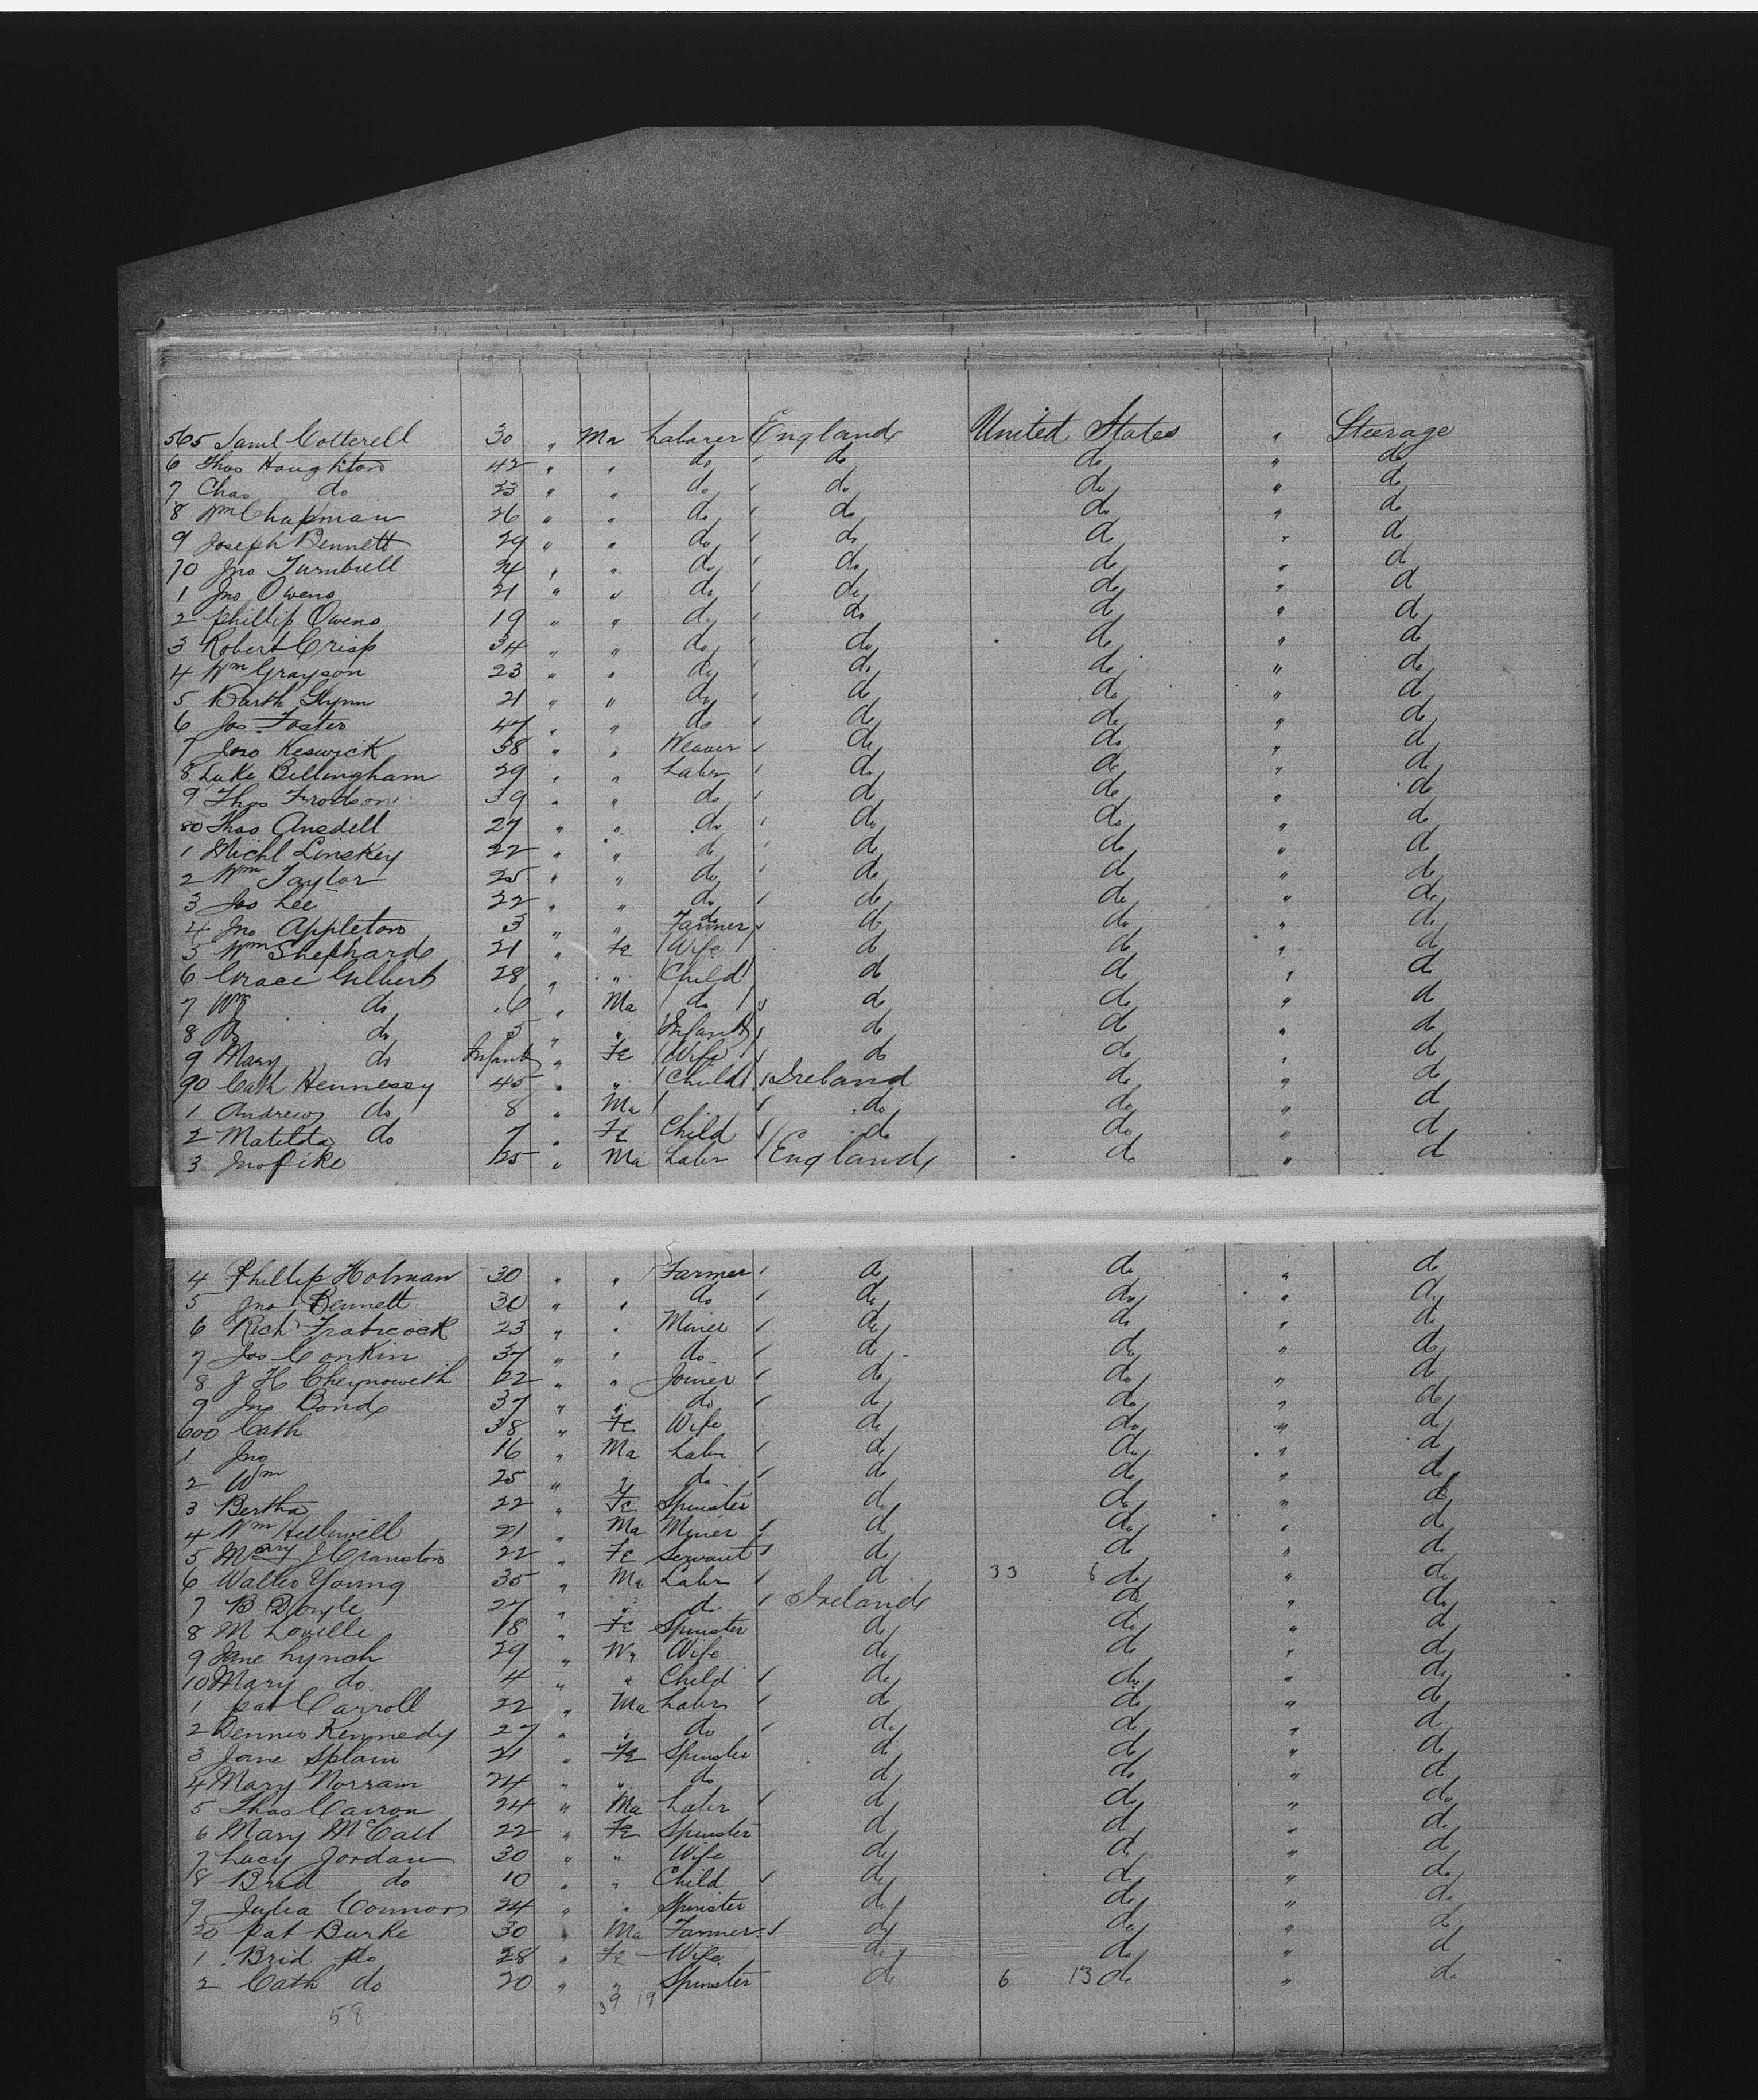 565 Saml Cotterell 30 " Ma Laborer England United States " Steerage
6 Thos Houghton 42 " " do do do " do
7 Chas do 23 " " do do do " do
8 Wm Chapman 26 " " do do do " do
9 Joseph Bennett 29 " " do do do " do
70 Jno Turnbull 24 " " do do do " do
1 Jno Owens 21 " " do do do " do
2 Phillip Owens 19 " " do do do " do
3 Robert Crisp 34 " " do do do " do
4 Wm Grayson 23 " " do do do " do
5 Barth Glynn 21 " " do do do " do
6 Jos Foster 47 " " do do do " do
7 Jno Keswick 38 " " Weaver do do " do
8 Luke Billingham 29 " " Labr do do " do
9 Thos 39 " " do do do " do
80 Thos Ansdell 27 " " do do do " do
1 Michl Linskey 22 " " do do do " do
2 Wm Taylor 25 " " do do do " do
3 Jas Lee 22 " " do do do " do
4 Jno Appleton 3 " " Farmer do do " do
5 Wm Shephard 21 " Fe Wife do do " do
6 Grace Gilbert 28 " " Child do do " do
7 Wm do 6 " Ma do do do " do
8 do 5 " " Infant do do " do
9 Mary do Infant " Fe Wife do do " do
90 Cath Hennessy 45 " " Child Ireland do " do
1 Andrew do 8 " Ma do do " do
2 Matilda do 7 " Fe Child do do " do
3 Jno Pike 25 " Ma Labr England do " do
4 Phillip Holman 30 " " Farmer do do " do
5 Jno Bennett 30 " " do do do " do
6 Rich 23 " " Miner do do " do
7 Jos Conkin 37 " " do do do " do
8 J H Cheynoweth 22 " " Joiner do do " do
9 Jno Bond 37 " " do do do " do
600 Cath 38 " Fe Wife do do " do
1 Jno 16 " Ma Labr do do " do
2 Wm 25 " " do do do " do
3 Bertha 22 " Fe Spinster do do " do
4 Wm 21 " Ma Miner do do " do
5 Mary J Cranston 22 " Fe Servant do do " do
6 Walter Young 35 " Ma Labr do 33 6 do " do
7 B Doyle 27 " " do Ireland do " do
8 M Loville 18 " Fe Spinster do do " do
9 Jane Lynch 29 " Wife do do " do
10 Mary do 4 " " Child do do " do
1 Pat Carroll 22 " Ma Labr do do " do
2 Dennis Kennedy 27 " " do do do " do
3 Jane Splain 21 " Fe Spinster do do " do
4 Mary Norram 24 " " do do do " do
5 Thos Carron 24 " Ma Labr do do " do
6 Mary McCall 22 " Fe Spinster do do " do
7 Lucy Jordan 30 " " Wife do do " do
8 Brid do 10 " " Child do do " do
9 Julia Connors 24 " " Spinster do do " do
20 Pat Burke 30 " Ma Farmer do do " do
1 Brid do 28 " Fe Wife do do " do
2 Cath do 20 " " Spinster do 6 13 do " do
58 39 19